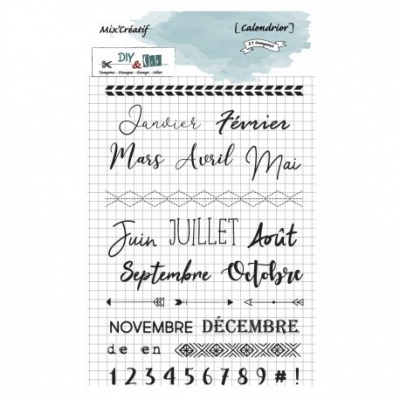 Mix'Créatif [ Calendrier ]
DIY & Cie
21 tampons
Tampons - Stampos - Stamps - Stiler
Janvier Février
Mars Avril Mai
Juin JUILLET Août
Septembre Octobre
NOVEMBRE DÉCEMBRE
de en
1 2 3 4 5 6 7 8 9 # !